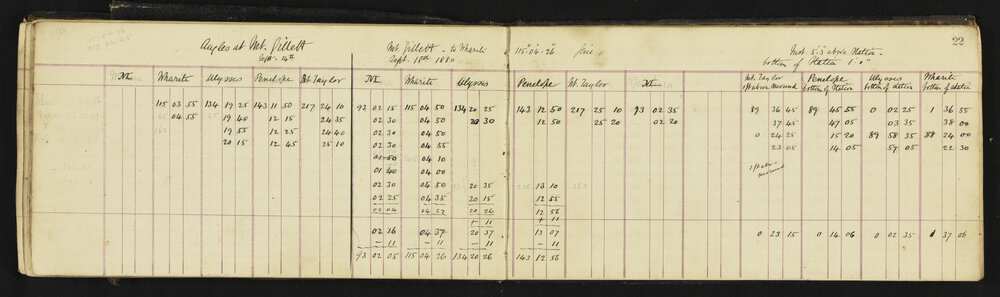 Angles at Mt. Gillett Mt. Gillett - to Wharite 115°.04'.26" fine Inst. 5'.3" above Station 22
Sept. 14th Sept. 18th 1880 bottom of Station 1'.0"
M Wharite Ulysses Penelope Mt Taylor M Wharite Ulysses Penelope Mt. Taylor M Mt. Taylor Penelope Ulysses Wharite
1 ft above mound bottom of Station bottom of Station bottom of Station
115 03 55 134 19 25 143 11 50 217 24 10 93 02 15 115 04 50 134 20 25 143 12 50 217 25 10 93 02 35 89 36 45 89 45 55 0 02 25 1 36 55
04 55 19 40 12 15 24 35 02 30 04 50 20 30 12 50 25 20 02 20 37 45 47 05 03 35 38 00
19 55 12 25 24 40 02 30 04 50 0 24 25 15 20 89 58 35 88 24 00
20 15 12 45 25 10 02 30 04 35 23 05 14 05 59 05 22 30
01 50 04 10
01 40 04 00 1 ft above mound
02 30 04 50 20 35 13 10
02 25 04 35 20 15 12 55
02 04 04 27 20 26 12 56
+ 11 + 11
02 16 04 37 20 37 13 07 0 23 15 0 14 06 0 02 35 1 37 06
- 11 - 11 - 11 - 11
93 02 05 115 04 26 134 20 26 143 12 56